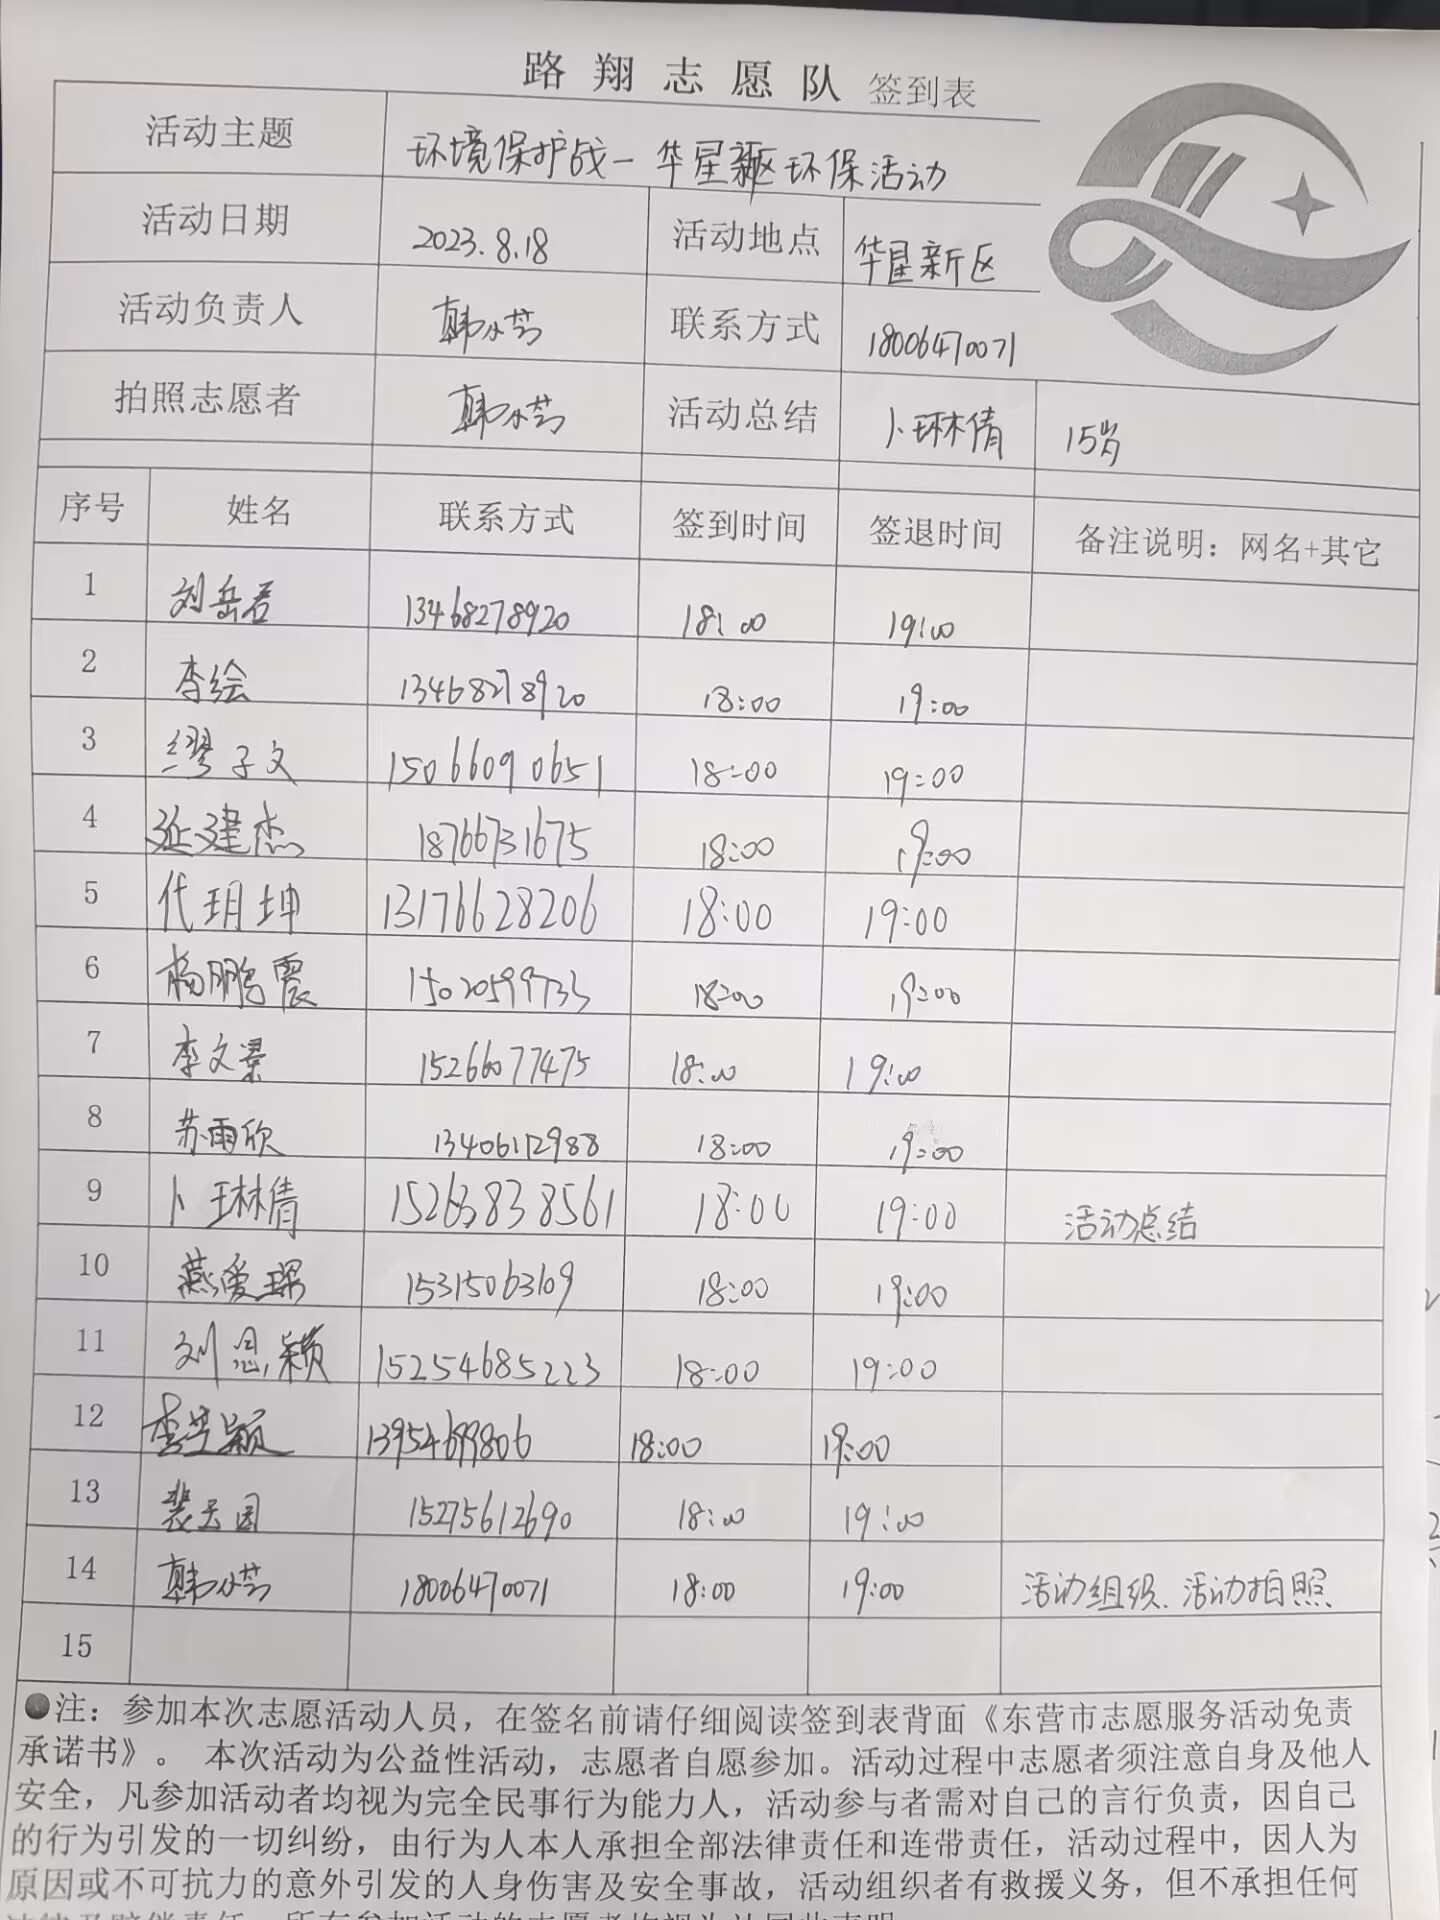 路翔志愿队 签到表
活动主题 环境保护战一华星新区环保活动
活动日期 2023.8.18 活动地点 华星新区
活动负责人 韩水芸 联系方式 18006470071
拍照志愿者 韩水芸 活动总结 卜琳倩 15岁
序号 姓名 联系方式 签到时间 签退时间 备注说明：网名+其它
1 刘岳君 13468278920 18:00 19:00
2 李绘 13468278920 18:00 19:00
3 缪子文 15066090651 18:00 19:00
4 延建杰 18766731675 18:00 19:00
5 代玥坤 13176628206 18:00 19:00
6 杨鹏震 15020599733 18:00 19:00
7 李文 15266077475 18:00 19:00
8 苏雨欣 13406112988 18:00 19:00
9 卜琳倩 15263838561 18:00 19:00 活动总结
10 燕爱琛 15315063109 18:00 19:00
11 刘恩颖 15254685223 18:00 19:00
12 李 颖 13954699806 18:00 19:00
13 裴云园 15275612690 18:00 19:00
14 韩水芸 18006470071 18:00 19:00 活动组织、活动拍照
15
●注：参加本次志愿活动人员，在签名前请仔细阅读签到表背面《东营市志愿服务活动免责
承诺书》。 本次活动为公益性活动，志愿者自愿参加。活动过程中志愿者须注意自身及他人
安全，凡参加活动者均视为完全民事行为能力人，活动参与者需对自己的言行负责，因自己
的行为引发的一切纠纷，由行为人本人承担全部法律责任和连带责任，活动过程中，因人为
原因或不可抗力的意外引发的人身伤害及安全事故，活动组织者有救援义务，但不承担任何